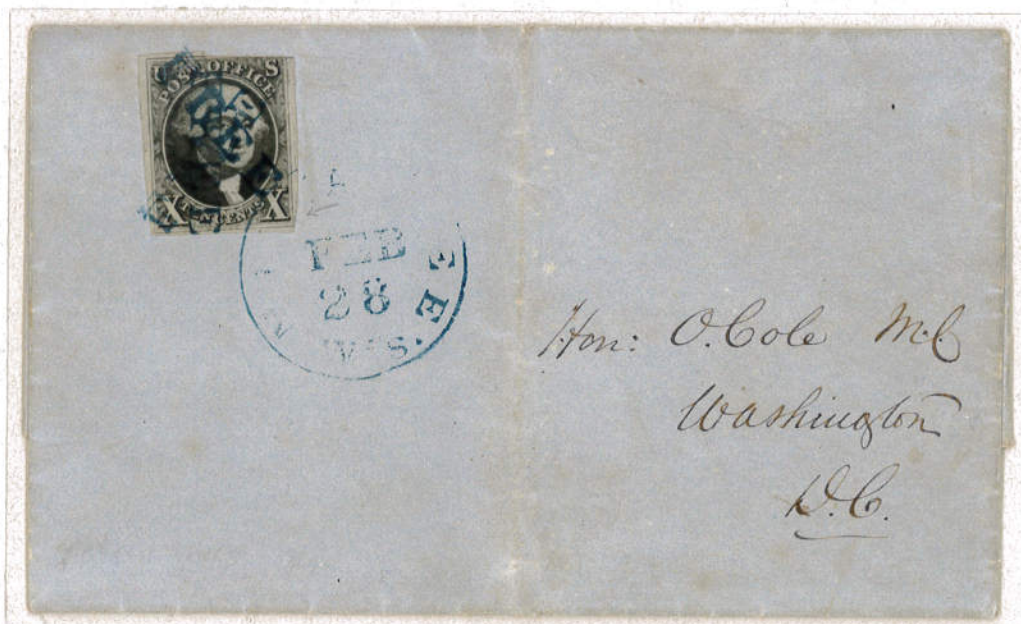 U S
POST OFFICE
X TEN CENTS X
FEB
28
WIS.
Hon: O. Cole M.C
Washington
D.C.